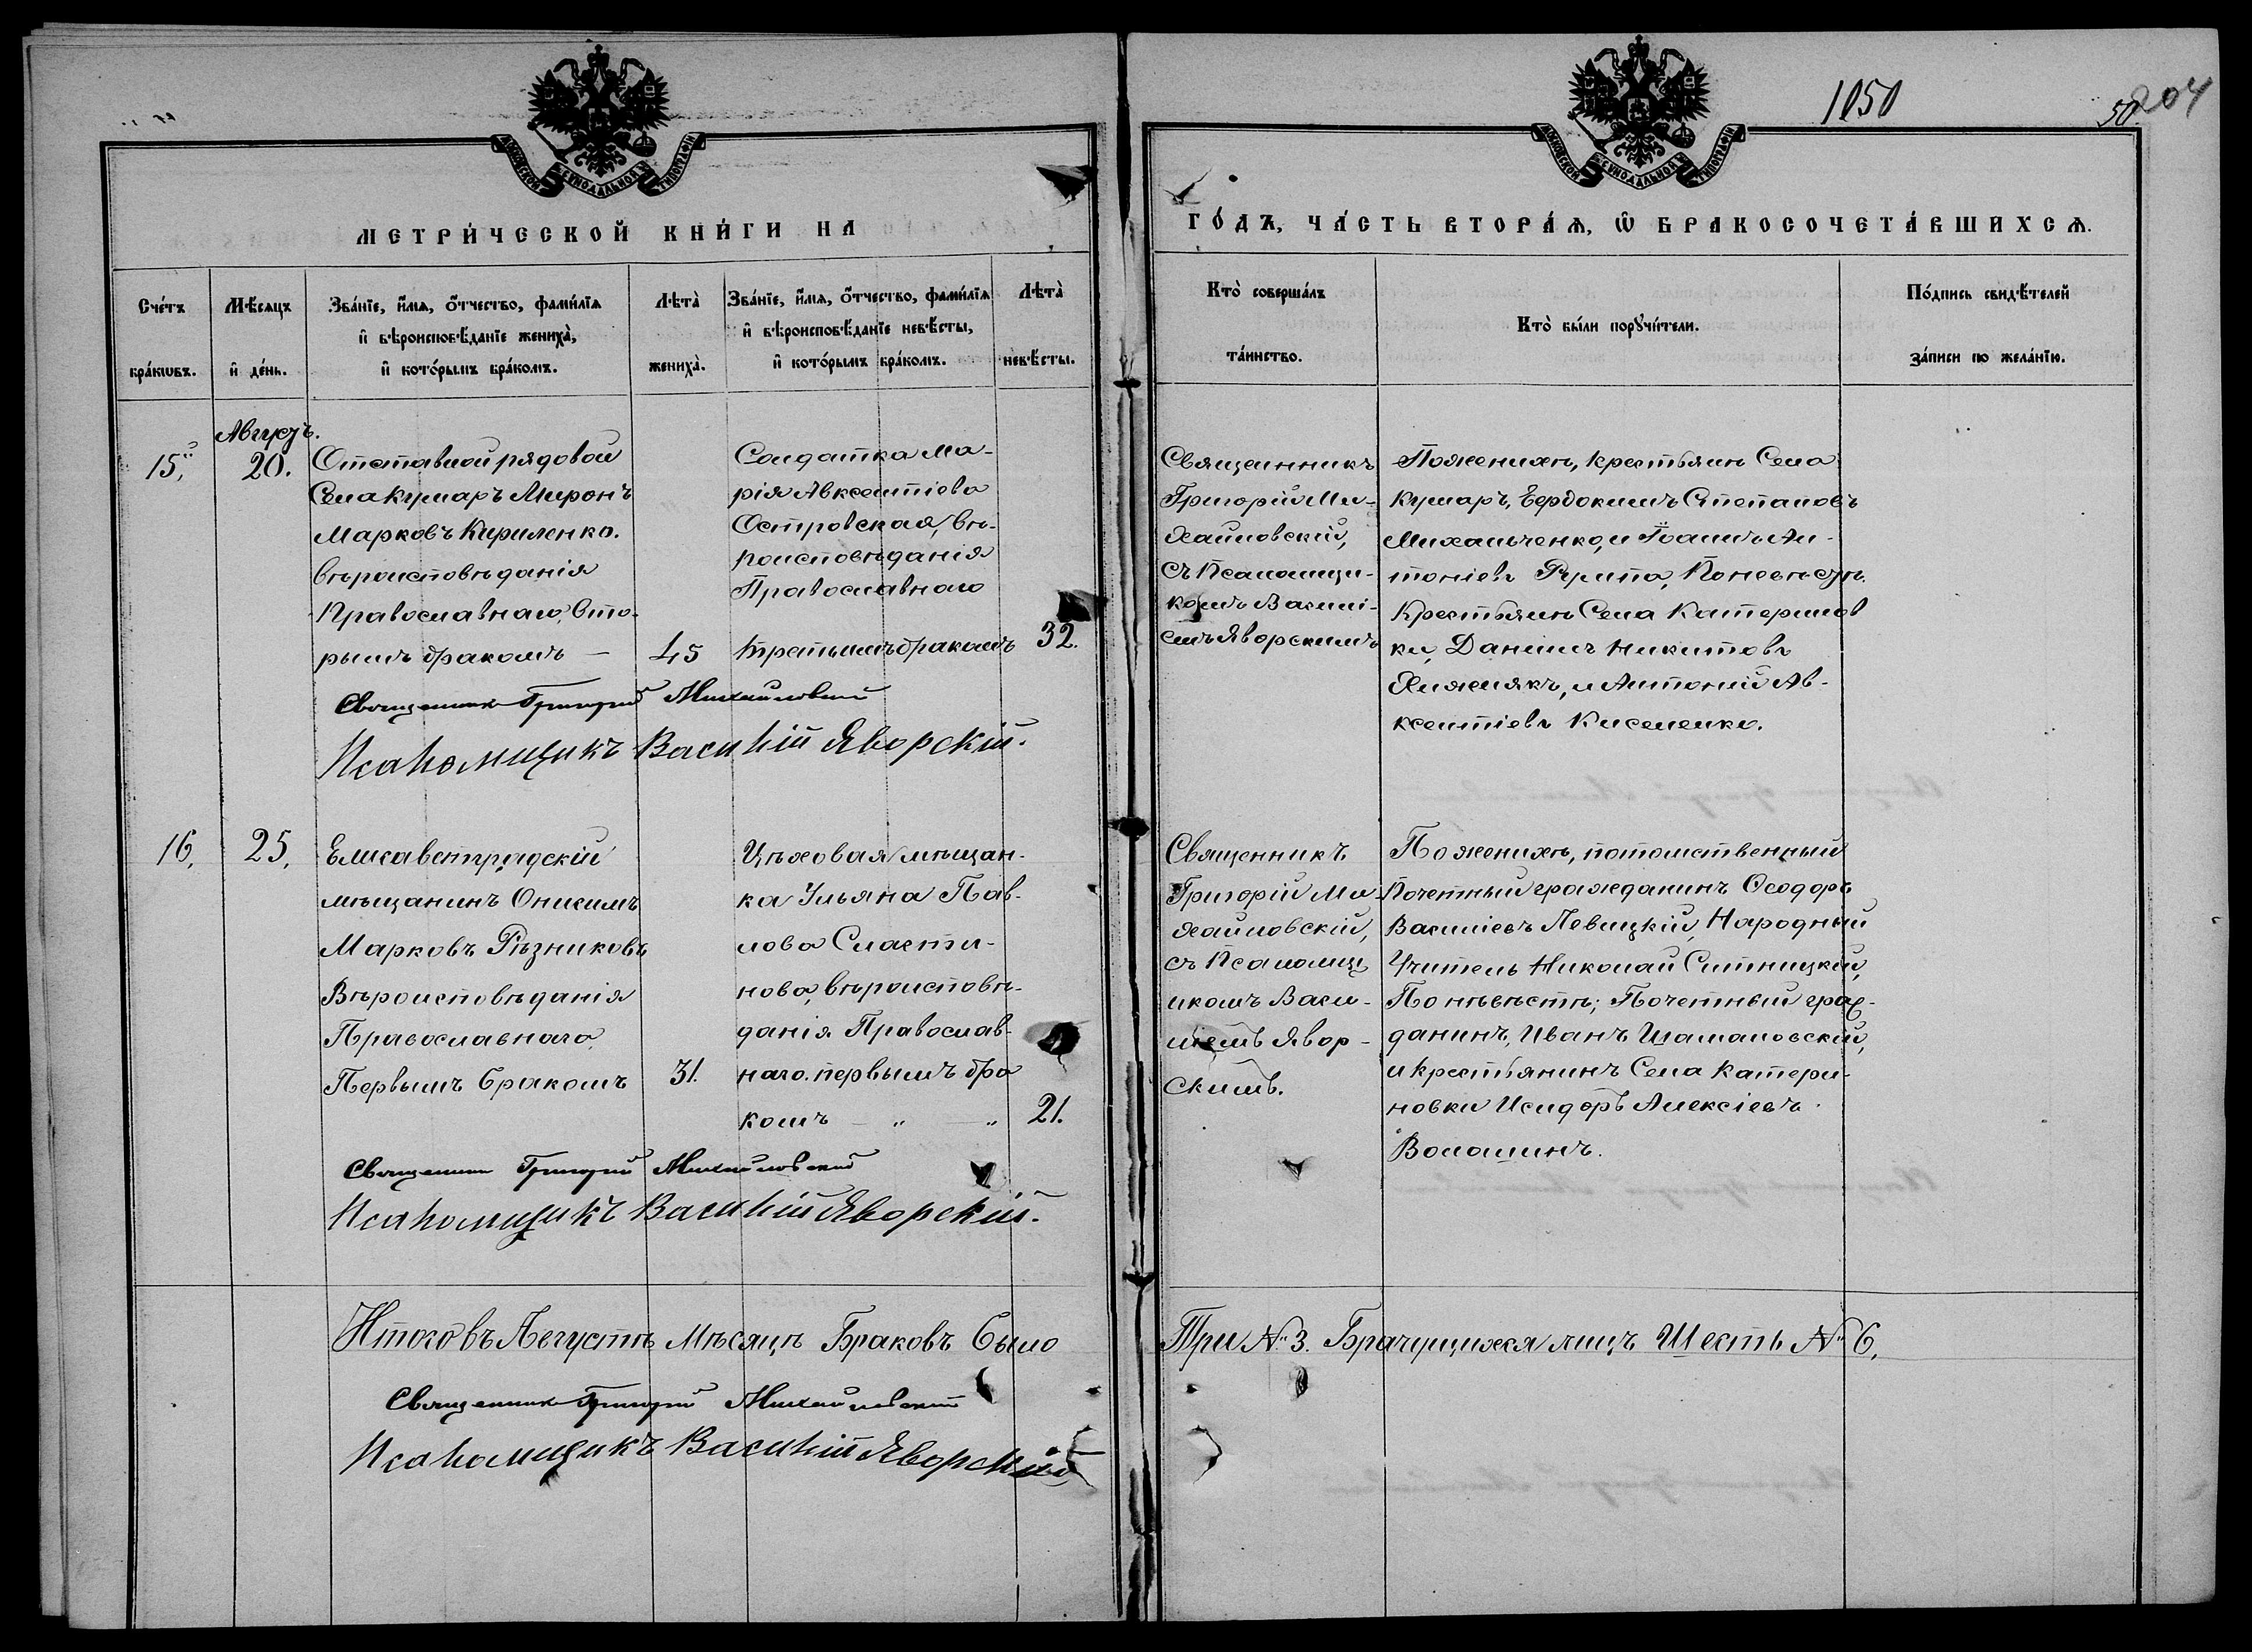 1050
50.
204
МОСКОВСКОЙ СѴНОДАЛЬНОЙ ТИПОГРАФІИ
МОСКОВСКОЙ СѴНОДАЛЬНОЙ ТИПОГРАФІИ
МЕТРИ́ЧЕСКОЙ КНИ́ГИ НА
ГО́ДЪ, ЧА́СТЬ ВТОРА́Ѧ, Ѽ БРАКОСОЧЕТА́ВШИХСѦ.
Сче́тъ
бра́кѡвъ.
Мѣ́сяцъ
и҆ де́нь.
Зва́нїе, и҆́мѧ, ѻ҆́тчество, фами́лїѧ
и҆ вѣроисповѣ́данїе жениха̀,
и҆ кото́рымъ бра́комъ.
Лѣта̀
жениха̀.
Зва́нїе, и҆́мѧ, ѻ҆́тчество, фами́лїѧ
и҆ вѣроисповѣ́данїе невѣ́сты,
и҆ кото́рымъ бра́комъ.
Лѣта̀
невѣ́сты.
Кто̀ соверша́лъ
та́инство.
Кто̀ бы́ли порꙋчи́тели.
По́дпись свидѣ́телей
за́писи по жела́нїю.
15,
Августъ.
20.
Отставной рядовой
Села Кумаръ Миронъ
Марковъ Кириленко.
вѣроисповѣданія
Православнаго, Вто-
рымъ бракомъ —
45
Солдатка Ма-
рія Авксентіева
Островская, вѣ-
роисповѣданія
Православнаго
третьимъ бракомъ
32.
Священникъ
Григорій Ми-
хайловскій,
съ Псаломщи-
комъ Васили-
емъ Яворскимъ
По женихѣ, крестьяне Села
Кумаръ, Евдокимъ Степановъ
Михальченко, и Іоаннъ Ан-
тоніевъ Рѣпа, По невѣстѣ.
Крестьяне Села Катеринов
ки, Даніилъ Никитовъ
Хижнякъ, и Антоній Ав-
ксентіевъ Киселенко.
Священникъ Григорій Михайловскій
Псаломщикъ Василій Яворскій.
16,
25,
Елисаветградскій
мѣщанинъ Онисимъ
Марковъ Рѣзниковъ
Вѣроисповѣданія
Православнаго
Первымъ бракомъ
31.
Цѣховая мѣщан-
ка Ульяна Пав-
лова Сласти-
нова, вѣроисповѣ-
данія Православ-
наго. первымъ бра
комъ — „ — „
21.
Священникъ
Григорій Ми-
хайловскій,
съ Псаломщ
икомъ Васи-
ліемъ Явор-
скимъ.
По женихѣ, потомственный
Почетный гражданинъ Ѳеодоръ
Василіевъ Левицкій, Народный
Учитель Николай Ситницкій,
По невѣстѣ; Почетный граж-
данинъ, Иванъ Шамановскій,
и крестьянинъ Села Катери-
новки Исидоръ Алексіевъ
Волошинъ.
Священникъ Григорій Михайловскій
Псаломщикъ Василій Яворскій.
Итого въ Августѣ Мѣсяцѣ Браковъ было
Три № 3. Брачущихся лицъ Шесть № 6,
Священникъ Григорій Михайловскій
Псаломщикъ Василій Яворскій